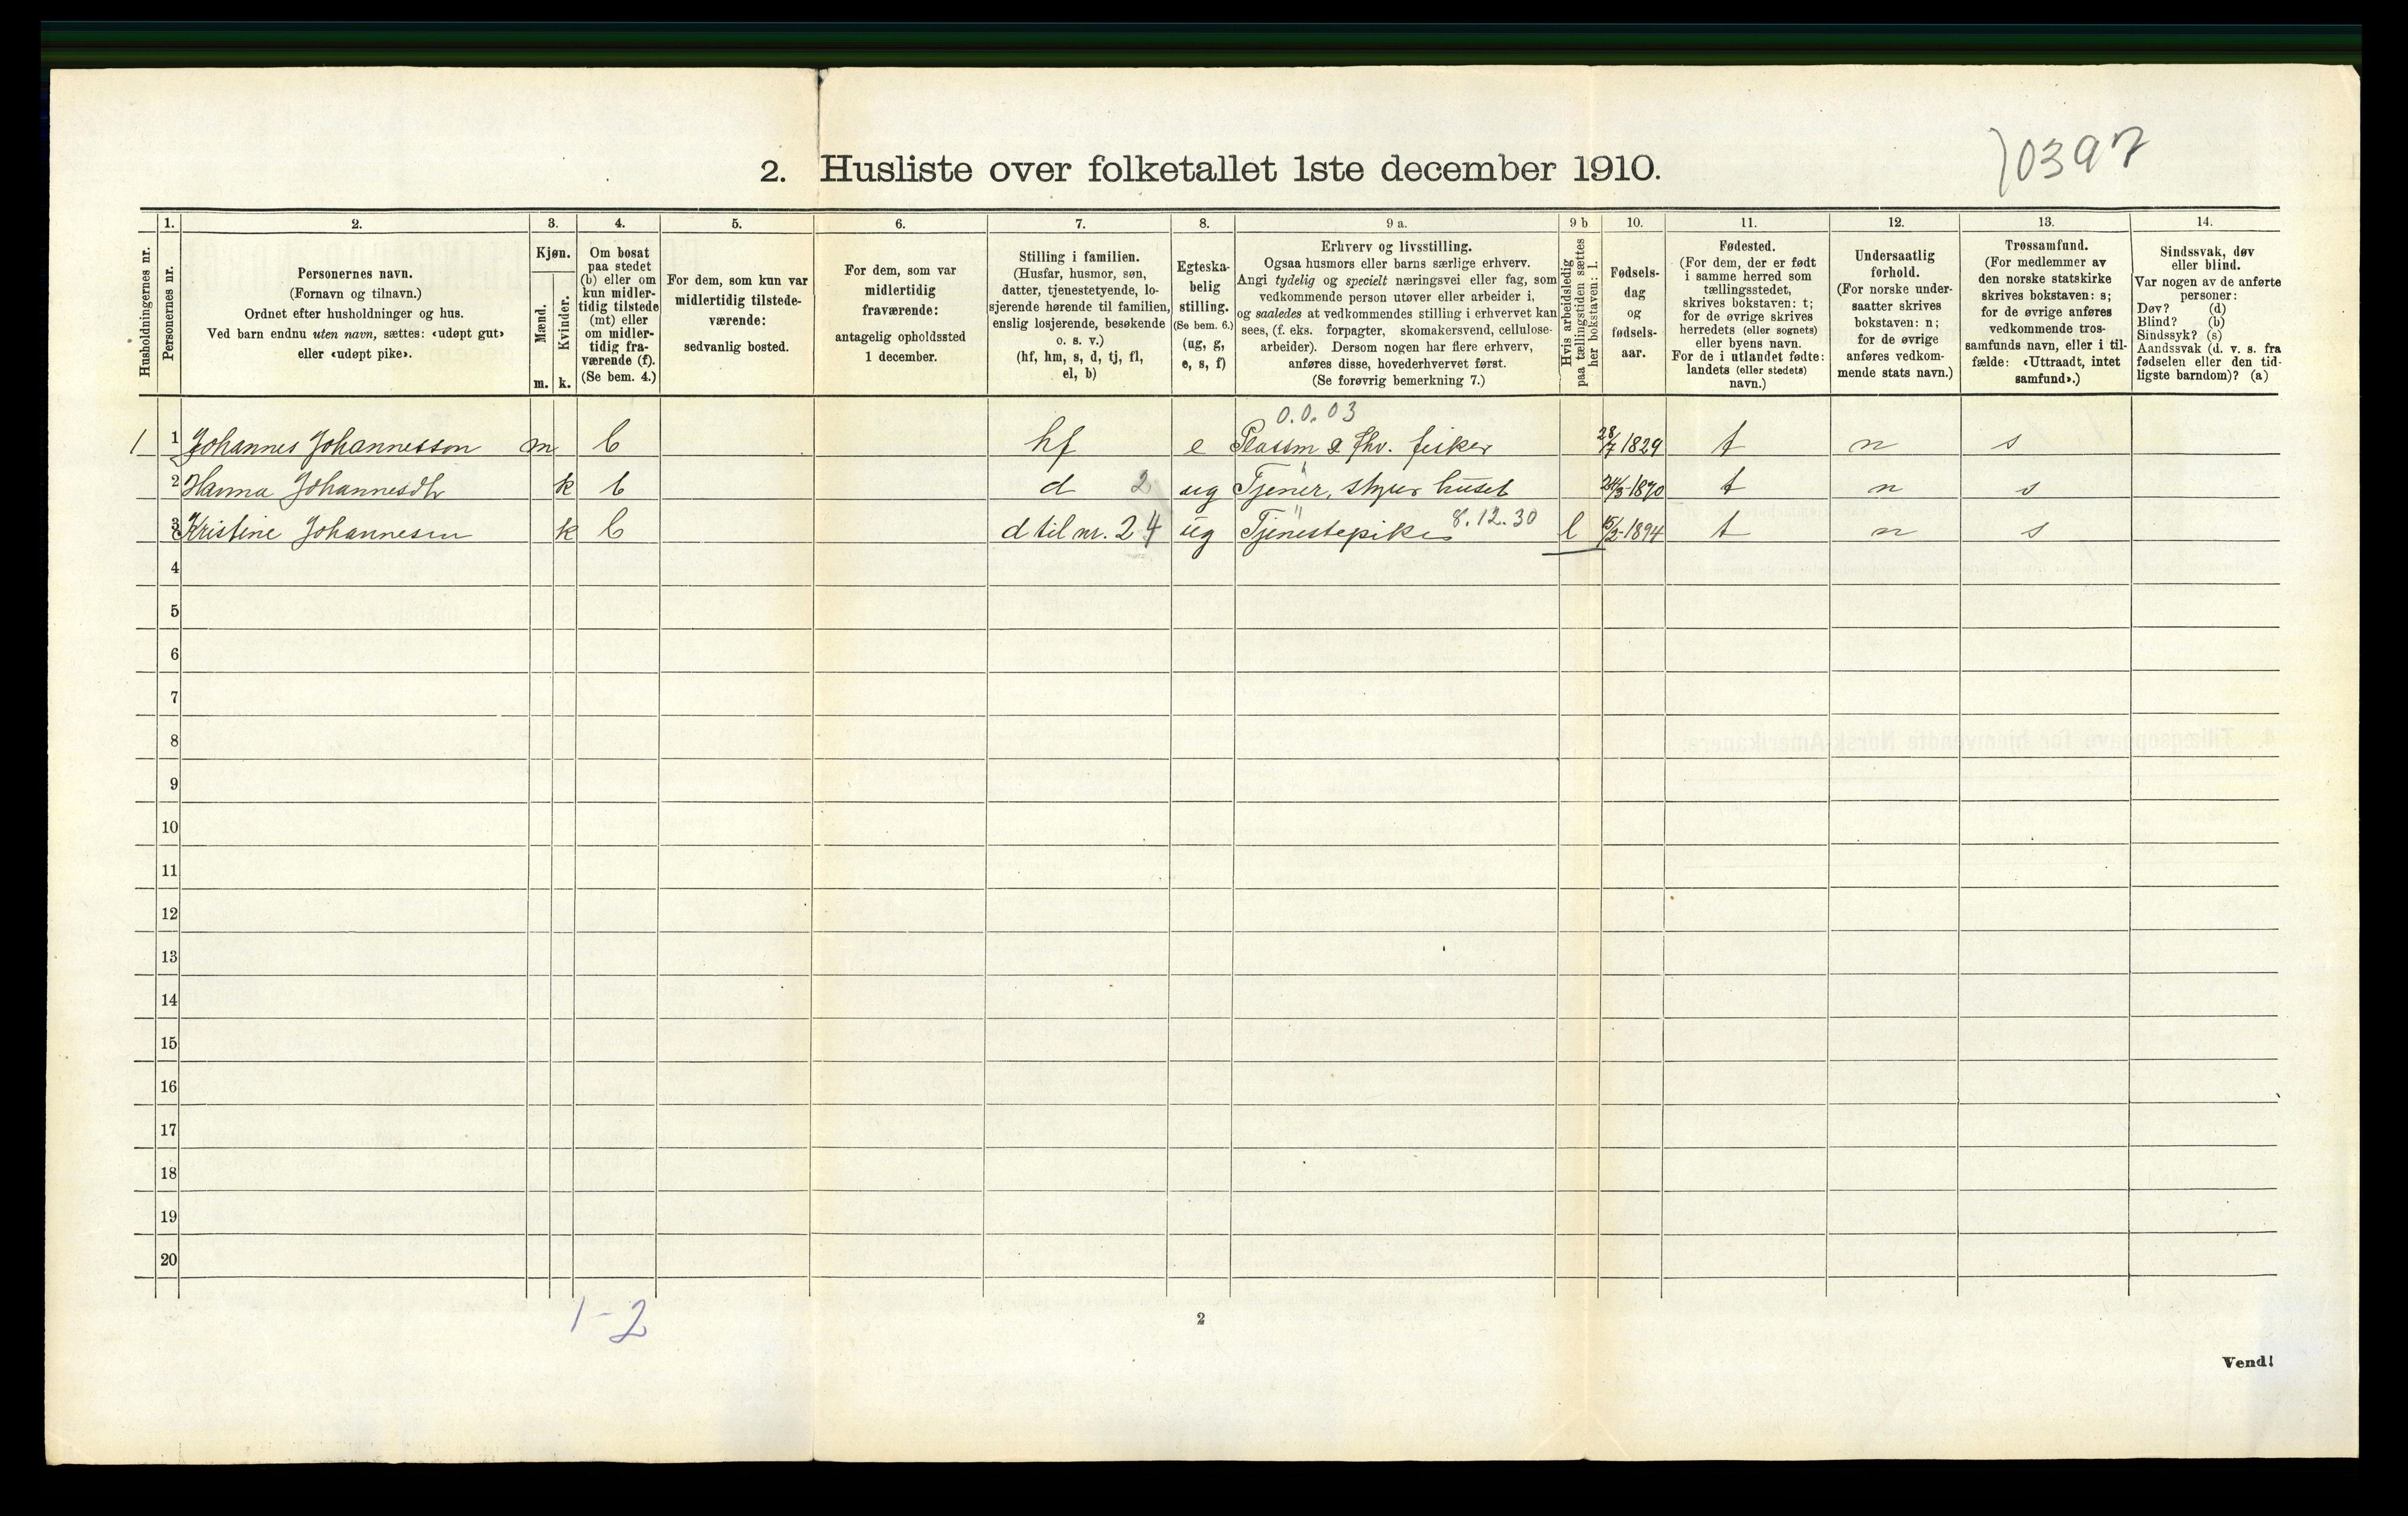 2. Husliste over folketallet 1ste december 1910.
10397
Husholdningernes nr.
1.
Personernes nr.
2.
Personernes navn.
(Fornavn og tilnavn.)
Ordnet efter husholdninger og hus.
Ved barn endnu uten navn, sættes: «udøpt gut»
eller «udøpt pike».
3.
Kjøn.
Mænd.
m.
Kvinder.
k.
4.
Om bosat
paa stedet
(b) eller om
kun midler-
tidig tilstede
(mt) eller
om midler-
tidig fra-
værende (f).
(Se bem. 4.)
5.
For dem, som kun var
midlertidig tilstede-
værende:
sedvanlig bosted.
6.
For dem, som var
midlertidig
fraværende:
antagelig opholdssted
1 december.
7.
Stilling i familien.
(Husfar, husmor, søn,
datter, tjenestetyende, lo-
sjerende hørende til familien,
enslig losjerende, besøkende
o. s. v.)
(hf, hm, s, d, tj, fl,
el, b)
8.
Egteska-
belig
stilling.
(Se bem. 6.)
(ug, g,
e, s, f)
9 a.
Erhverv og livsstilling.
Ogsaa husmors eller barns særlige erhverv.
Angi tydelig og specielt næringsvei eller fag, som
vedkommende person utøver eller arbeider i,
og saaledes at vedkommendes stilling i erhvervet kan
sees, (f. eks. forpagter, skomakersvend, cellulose-
arbeider). Dersom nogen har flere erhverv,
anføres disse, hovederhvervet først.
(Se forøvrig bemerkning 7.)
9 b
Hvis arbeidsledig
paa tællingstiden sættes
her bokstaven: l.
10.
Fødsels-
dag
og
fødsels-
aar.
11.
Fødested.
(For dem, der er født
i samme herred som
tællingsstedet,
skrives bokstaven: t;
for de øvrige skrives
herredets (eller sognets)
eller byens navn.
For de i utlandet fødte:
landets (eller stedets)
navn.)
12.
Undersaatlig
forhold.
(For norske under-
saatter skrives
bokstaven: n;
for de øvrige
anføres vedkom-
mende stats navn.)
13.
Trossamfund.
(For medlemmer av
den norske statskirke
skrives bokstaven: s;
for de øvrige anføres
vedkommende tros-
samfunds navn, eller i til-
fælde: «Uttraadt, intet
samfund».)
14.
Sindssvak, døv
eller blind.
Var nogen av de anførte
personer:
Døv? (d)
Blind? (b)
Sindssyk? (s)
Aandssvak (d. v. s. fra
fødselen eller den tid-
ligste barndom)? (a)
0.0.03
1 1 Johannes Johannesson m b hf e Plassm & fhv. fisker 28/7 1829 t n s
2 Hanna Johannesdtr k b d 2 ug Tjener, styrer huset 1870 t n s
3 Kristine Johannesen k b d til nr. 2 4 ug Tjenestepike 8.12.30 l 15/2-1894 t n s
4
5
6
7
8
9
10
11
12
13
14
15
16
17
18
19
20
1-2
2
Vend!